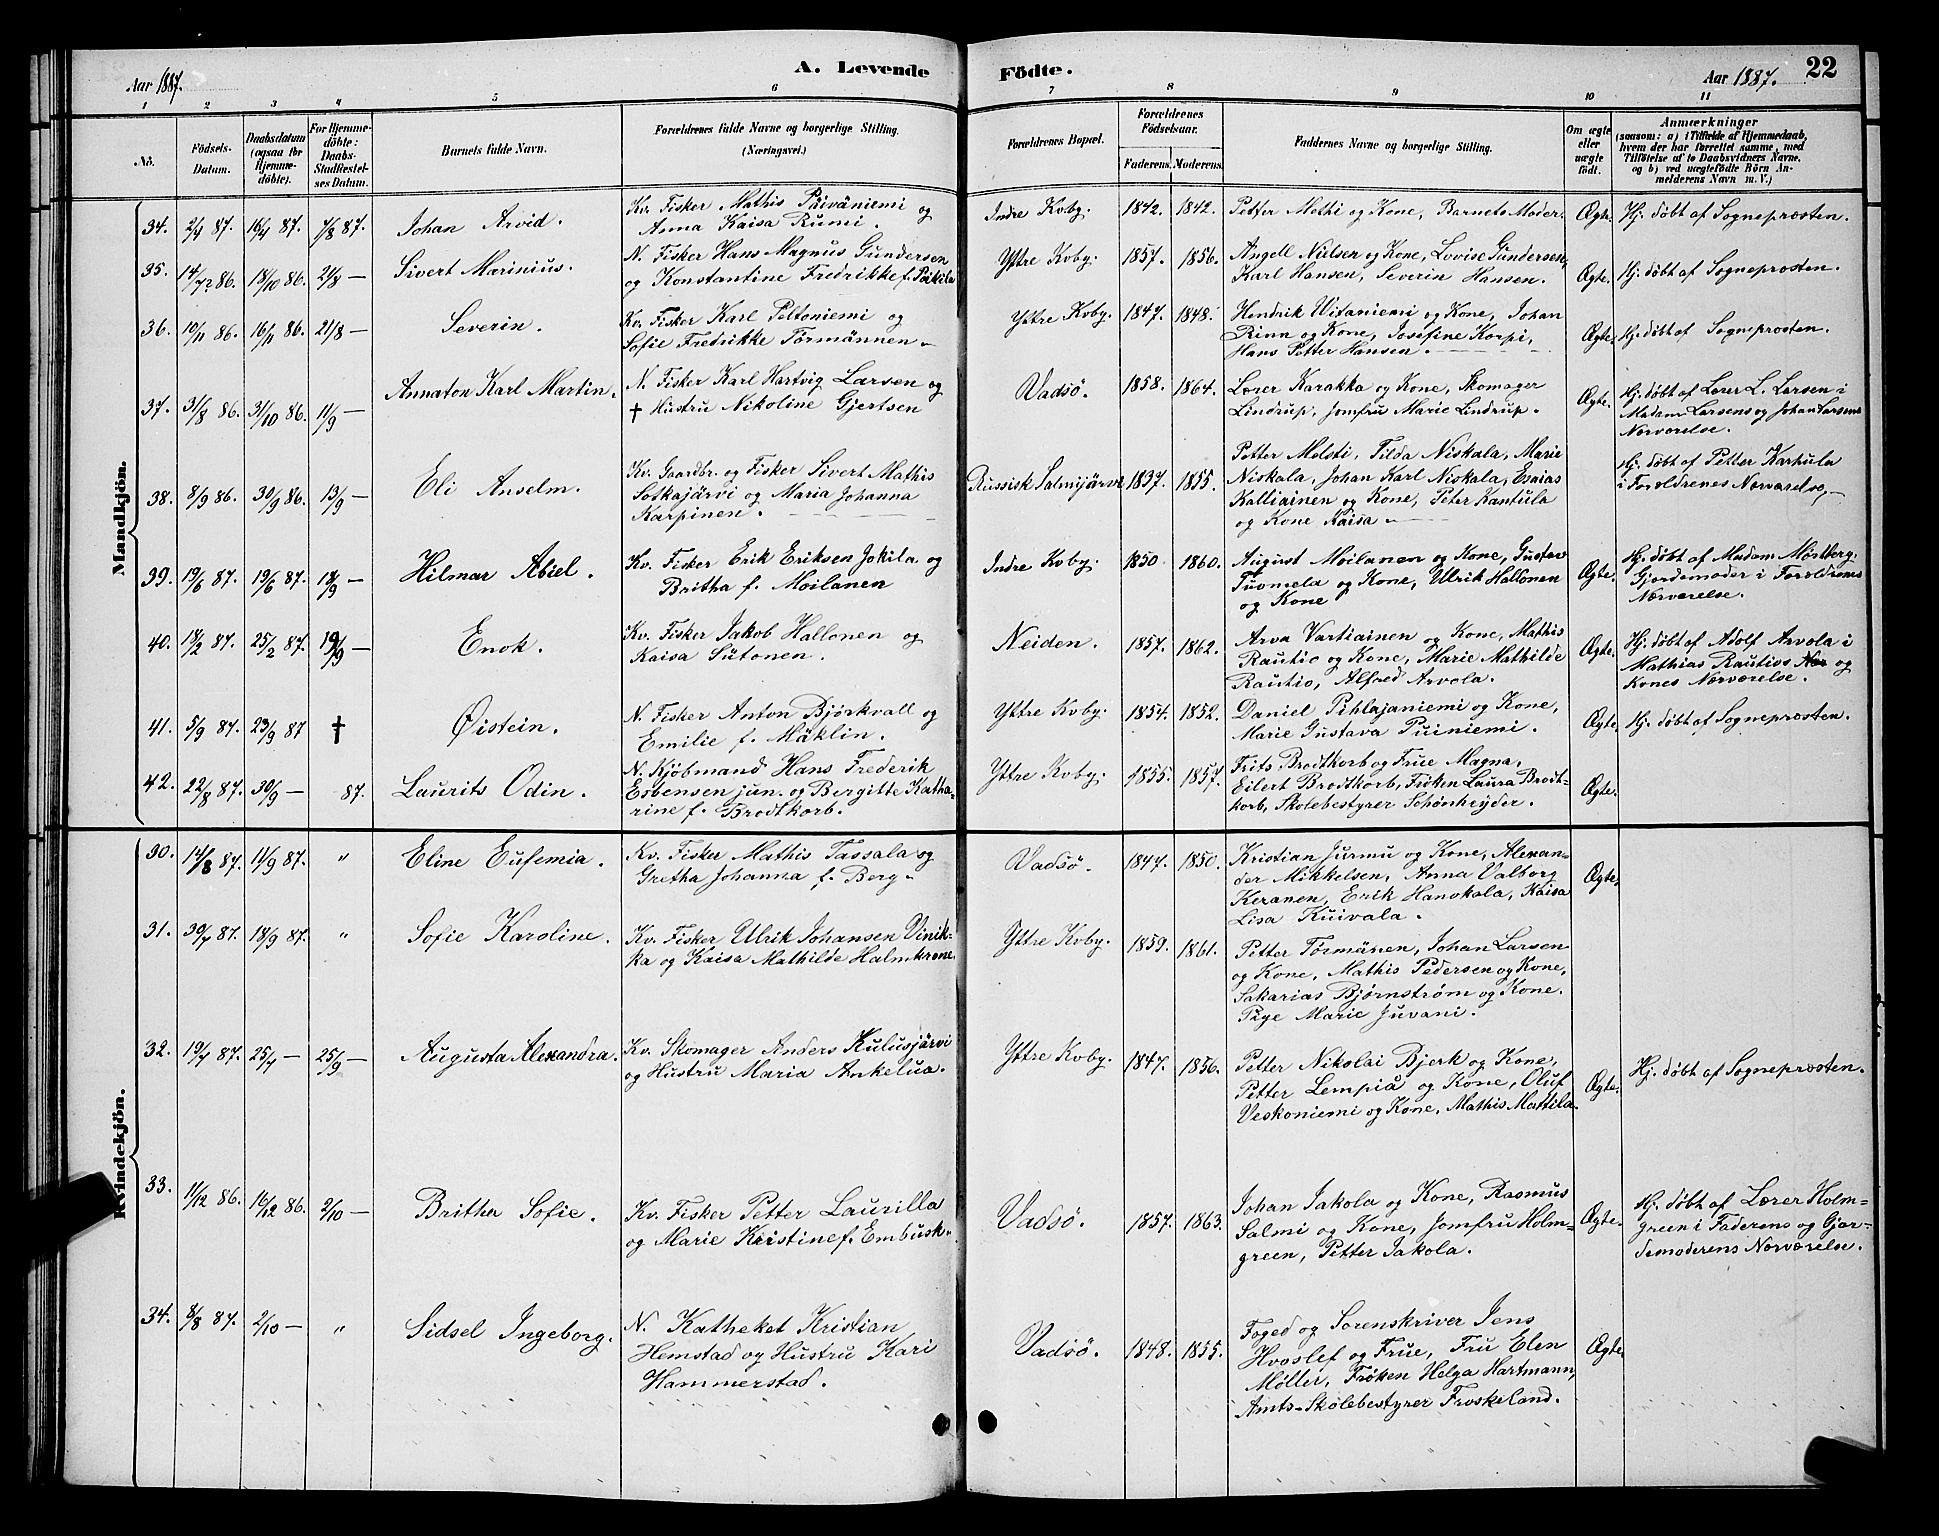 Aar 1887.
A. Levende
Födte.
Aar 1887.
22
1 2 3 4 5 6 7 8 9 10 11
No.
Födsels-
Datum.
Daabsdatum
(ogsaa for
Hjemme-
döbte).
For Hjemme-
döbte:
Daabs-
Stadfæstel-
ses Datum.
Barnets fulde Navn.
Forældrenes fulde Navne og borgerlige Stilling.
(Næringsvei.)
Forældrenes Bopæl.
Forældrenes
Födselsaar.
Faderens. Moderens.
Faddernes Navne og borgerlige Stilling.
Om ægte
eller
uægte
født.
Anmærkninger
(saasom: a) i Tilfælde af Hjemmedaab,
hvem der har forrettet samme, med
Tilføielse af to Daabsvidners Navne,
og b) ved uægtefødte Börn An-
melderens Navn m. V.)
Mandkjön.
34. 2/4 87. 16/4 87. 7/8 87. Johan Arvid.
Kv. Fisker Mathis Päiväniemi og
Anna Kaisa Rumi.
Indre Kvby. 1842. 1842. Petter Methi og Kone, Barnets Moder. Ægte. Hj. døbt af Sogneprosten.
35. 14/72 86. 18/10 86. 21/8 — Sivert Marinius.
N. Fisker Hans Magnus Gundersen
og Konstantine Fredrikke f. Peikila
Yttre Kvby. 1857. 1856. Angell Nielsen og Kone, Lovise Gundersen,
Karl Hansen, Severin Hansen. Ægte. Hj. døbt af Sogneprosten.
36. 10/11 86. 16/11 86. 21/8 — Severin.
Kv. Fisker Karl Peltoniemi og
Sofie Fredrikke Törmännen
Yttre Kvby. 1847. 1848. Hendrik Witaniemi og Kone, Johan
Rinn og Kone, Josefine Korpi,
Hans Petter Hansen. Ægte. Hj. døbt af Sogneprosten.
37. 31/8 86. 31/10 86. 11/9 — Annaton Karl Martin.
N. Fisker Karl Hartvig Larsen og
† Hustru Nikoline Gjertsen
Vadsö. 1858. 1864. Lærer Karakka og Kone, Skomager
Lindrup, Jomfru Marie Lindrup. Ægte.
Hj. døbt af Lærer L. Larsen i
Madam Larsens og Johan Larsens
Nærværelse.
38. 8/9 86. 30/9 86. 13/9 — Eli Anselm.
Kv. Gaardbr. og Fisker Sivert Mathis
Sotkajärvi og Maria Johanna
Karpinen.
Russisk Salmijärvi 1837. 1855.
Petter Melsti, Tilda Niskala, Marie
Niskala, Johan Karl Niskala, Esaias
Kalliainen og Kone, Peter Kantula
og Kone Kaisa
Hj. døbt af Petter Karhula
i Forældrenes Nærværelse,
39. 19/6 87. 19/6 87. 18/9 — Hilmar Abiel.
Kv. Fisker Erik Eriksen Jokila og
Britha f. Moilanen
Indre Kvby. 1850 1860.
August Moilanen og Kone, Gustav
Tuomela og Kone, Ulrik Hallonen
og Kone
Ægte. Hj. døbt af Madam Mørtberg,
Gjordemoder i Forældrenes
Nærværelse.
40. 18/2 87. 25/2 87. 19/9 — Enok.
Kv. Fisker Jakob Hallonen og
Kaisa Sütonen.
Neiden. 1857. 1862.
Arva Vartiainen og Kone, Mathis
Rautio og Kone, Marie Mathilde
Rautio, Alfred Arvola.
Ægte. Hj. døbt af Adolf Arvola i
Mathias Rautios og
Kones Nærværelse.
41. 5/9 87. 23/9 87 † Øistein.
N. Fisker Anton Bjørkvall og
Emilie f. Mäklin.
Yttre Kvby. 1854. 1852. Daniel Pihlajaniemi og Kone,
Marie Gustava Puiniemi. Ægte. Hj. døbt af Sogneprosten.
42. 22/8 87. 30/9 — 87. Laurits Odin.
N. Kjöbmand Hans Frederik
Esbensen jun. og Bergitte Katha-
rine f. Brodtkorb.
Yttre Kvby. 1855. 1857. Frits Brodtkorb og Frue Magna,
Eilert Brodtkorb, Frøken Laura Brodt-
korb, Skolebestyrer Schönheyder. Ægte.
Kvindekjön.
30. 14/8 87. 11/9 87. " Eline Eufemia.
Kv. Fisker Mathis Tassala og
Gretha Johanna f. Berg
Vadsö. 1847. 1850. Kristian Jurmu og Kone, Alexan-
der Mikkelsen, Anna Valborg
Keranen, Erik Hanskala, Kaisa
Lisa Kuivala. Ægte.
31. 30/7 87. 18/9 87. " Sofie Karoline.
Kv. Fisker Ulrik Johansen Vinik-
ka og Kaisa Mathilde Halmkrone.
Yttre Kvby. 1859. 1861. Petter Tørmänen, Johan Larsen
og Kone, Mathis Pedersen og Kone,
Sakarias Bjørnström og Kone.
Pige Marie Juvani.
32. 19/7 87. 25/7 — 25/9 — Augusta Alexandra.
Kv. Skomager Anders Kulusjärvi
og Hustru Maria Ankelua.
Yttre Kvby. 1847. 1856. Petter Nikolai Bjerk og Kone,
Petter Lempiä og Kone, Oluf
Veskoniemi og Kone, Mathis Mattila. Ægte. Hj. døbt af Sogneprosten.
33. 11/12 86. 16/12 86. 2/10 — Britha Sofie.
Kv. Fisker Petter Laurilla
og Marie Kristine f. Embusk.
Vadsö. 1857. 1863. Johan Jakola og Kone, Rasmus
Salmi og Kone, Jomfru Holm-
green, Petter Jakola.
Ægte. Hj. døbt af Lærer Holm-
green i Faderens og Gjor-
demoderens Nærværelse.
34. 8/8 87. 2/10 — " Sidsel Ingeborg.
N. Katheket Kristian
Hemstad og Hustru Kari
Hammerstad.
Vadsö. 1848. 1855. Foged og Sorenskriver Jens
Hvoslef og Frue, Fru Elen
Møller, Frøken Helga Hartmann,
Amts-Skolebestyrer Froskeland. Ægte.